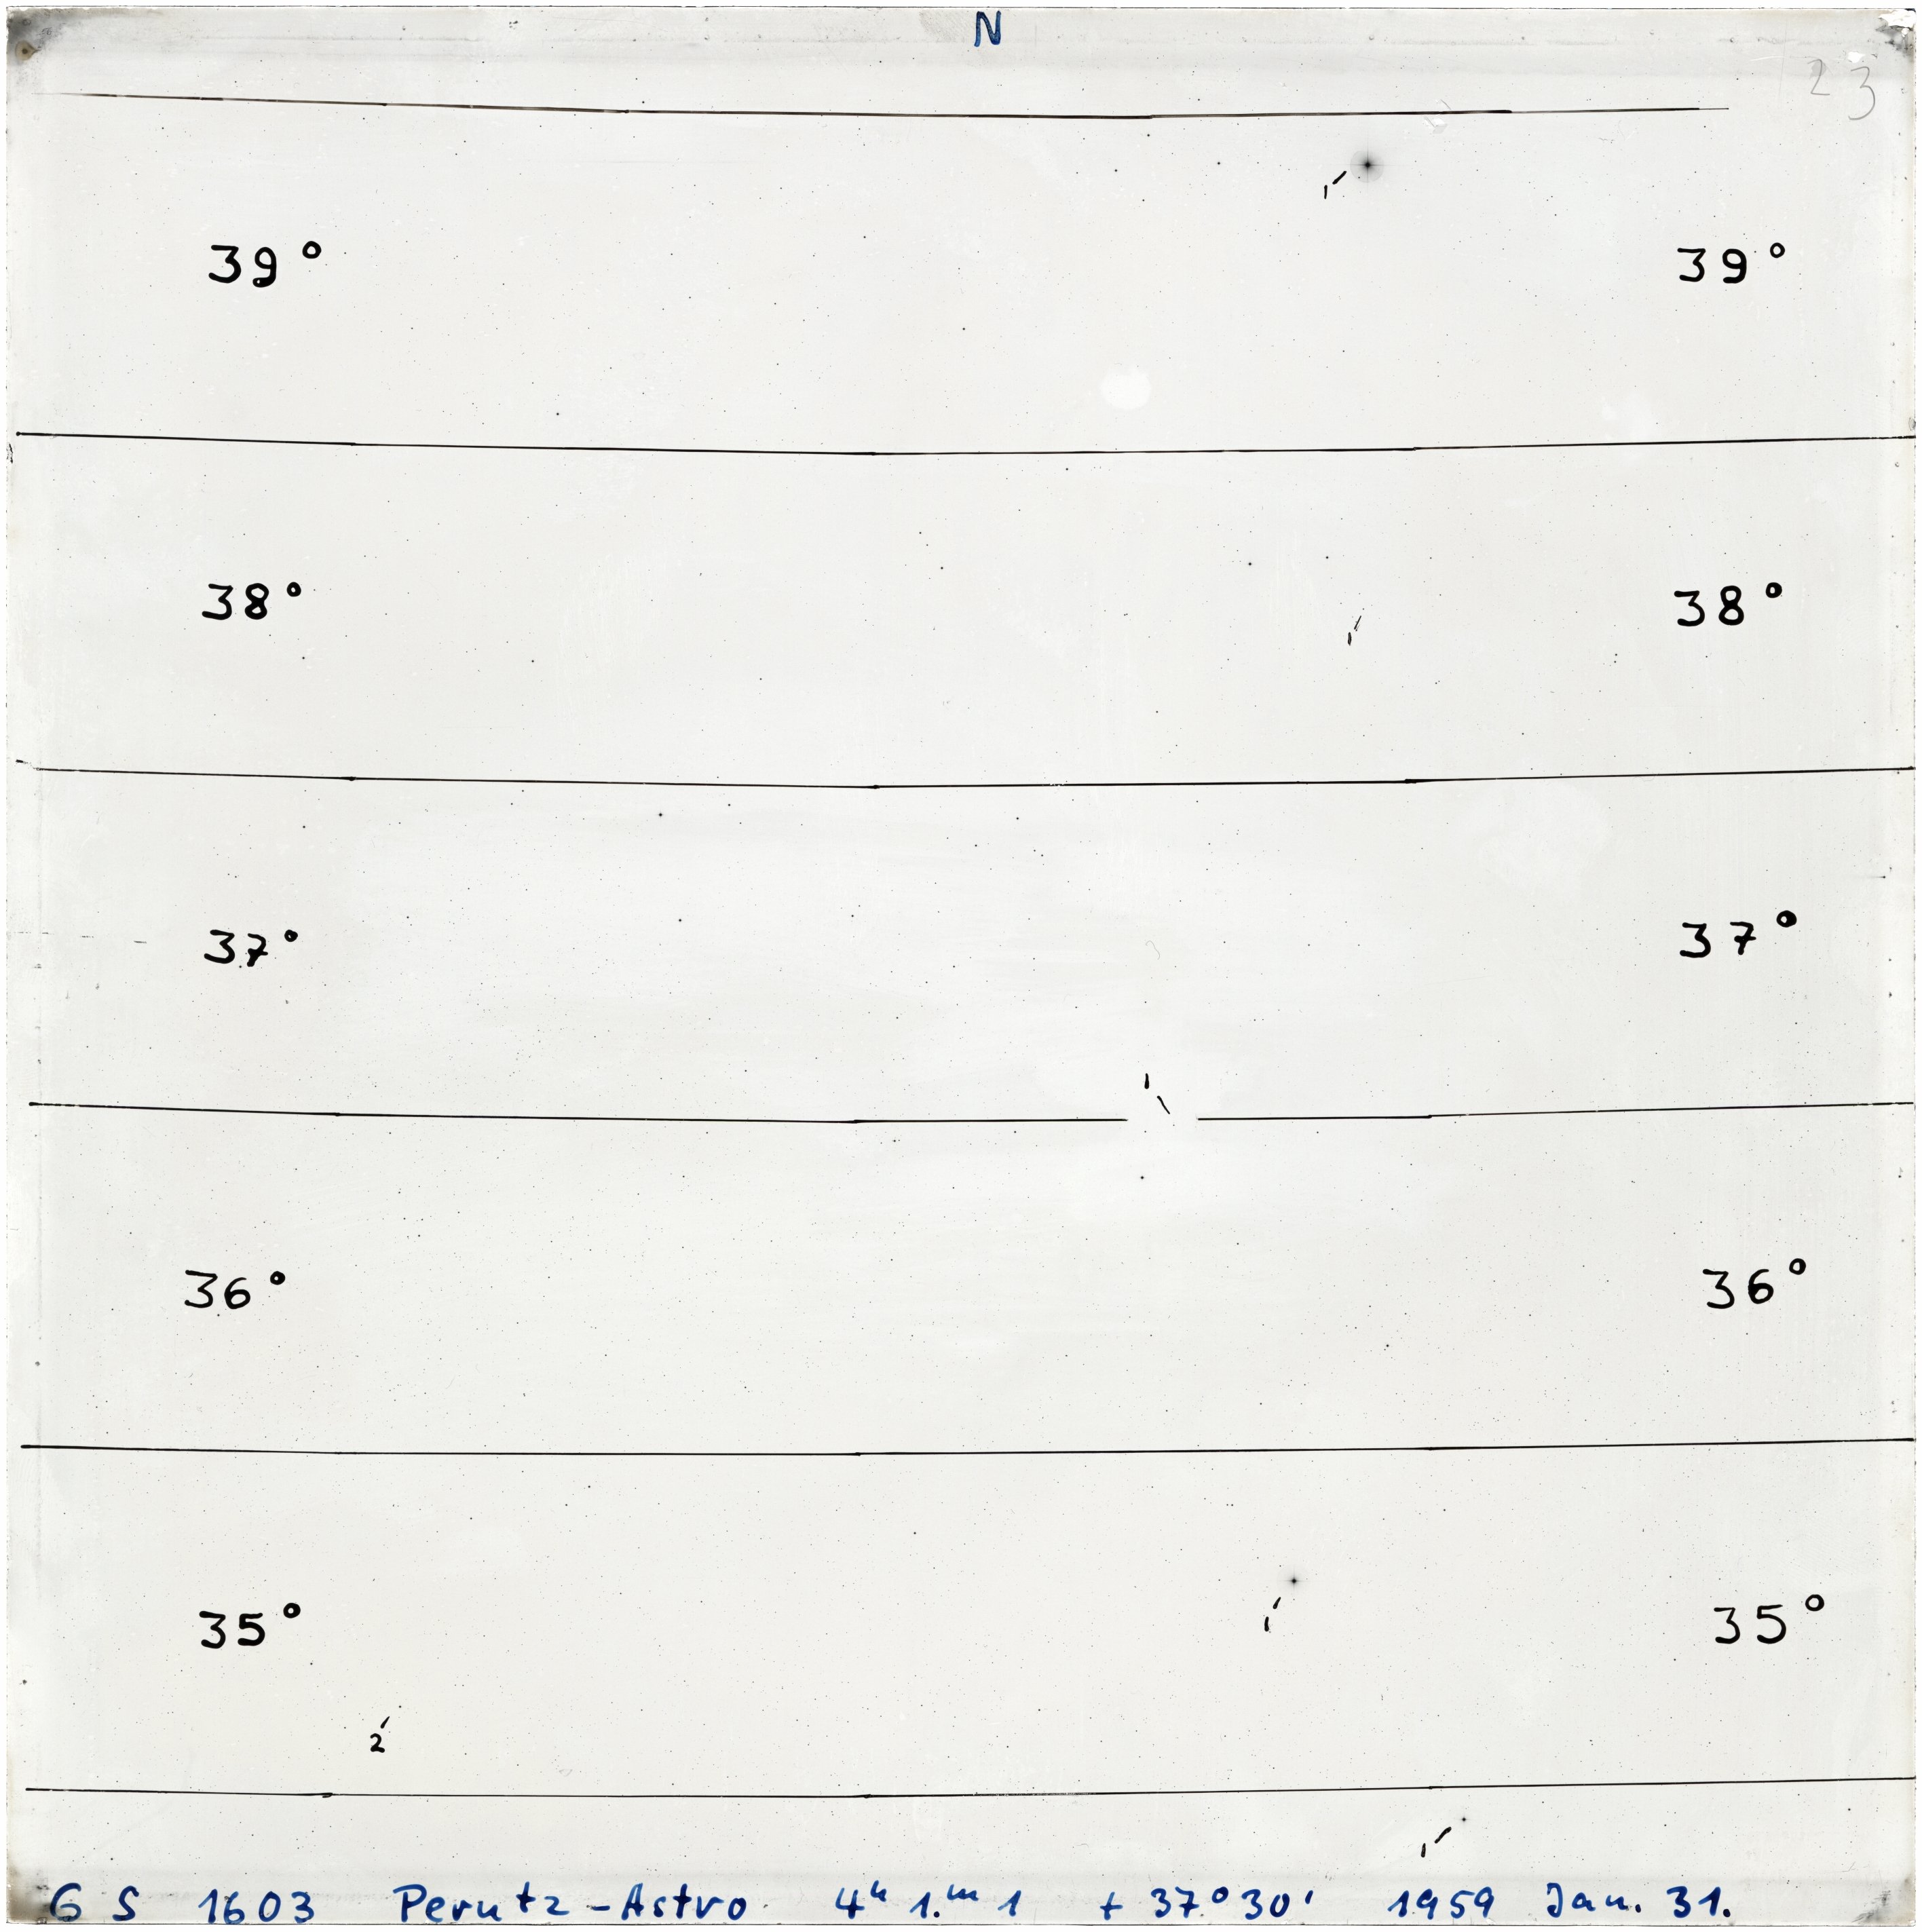 N
23
39° 39°
1
38° 38°
1
37° 37°
1
36° 36°
1
35° 35°
2
1
GS 1603 Perutz-Astro 4h 1.m 1 + 37° 30' 1959 Jan. 31.